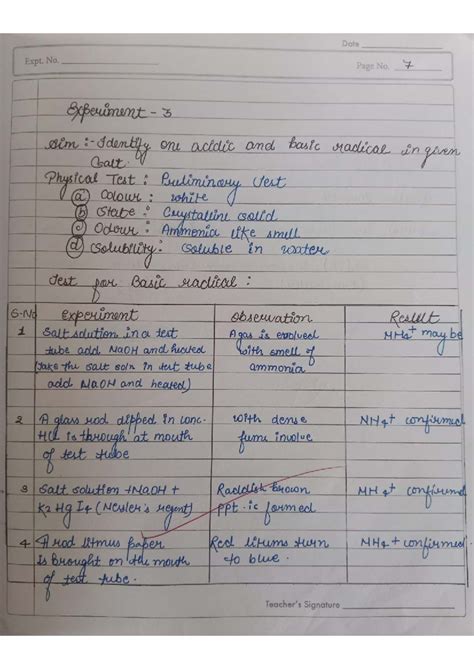 Date
Expt. No.
Page No. 7
Experiment - 3
Aim :- Identify one acidic and basic radical in given
Salt.
Physical Test : Preliminary test
(a) Colour : white
(b) State : Crystalline solid
(c) Odour : Ammonia like smell
(d) Solubility : Soluble in water
Test for Basic radical :
S.No Experiment Observation Result
1 Salt solution in a test A gas is evolved NH4+ may be
tube add NaOH and heated with smell of
(take the salt soln in test tube ammonia
add NaOH and heated)
2 A glass rod dipped in conc. with dense NH4+ confirmed
HCl is through at mouth fume involve
of test tube
3 Salt solution + NaOH + Raddish brown NH4+ confirmed
K2HgI4 (Nessler's regent) ppt. is formed
4 A rod litmus paper Red litmus turn NH4+ confirmed
is brought on the mouth to blue.
of test tube.
Teacher's Signature